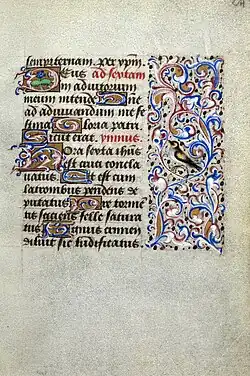 sempiternam. Per xpm̄.
Deus ad sextam
in adiutorium
meum intende Dne
ad adiuuandum me fe
stina Gloria patri.
Sicut erat. ymnus.
Hora sexta ihus
est cruci
uatus Et est cum
latronibus pendens de
putatus Pre torme
tis siciens felle satura
tus Agnus crimen
diluit sic ludificatus.